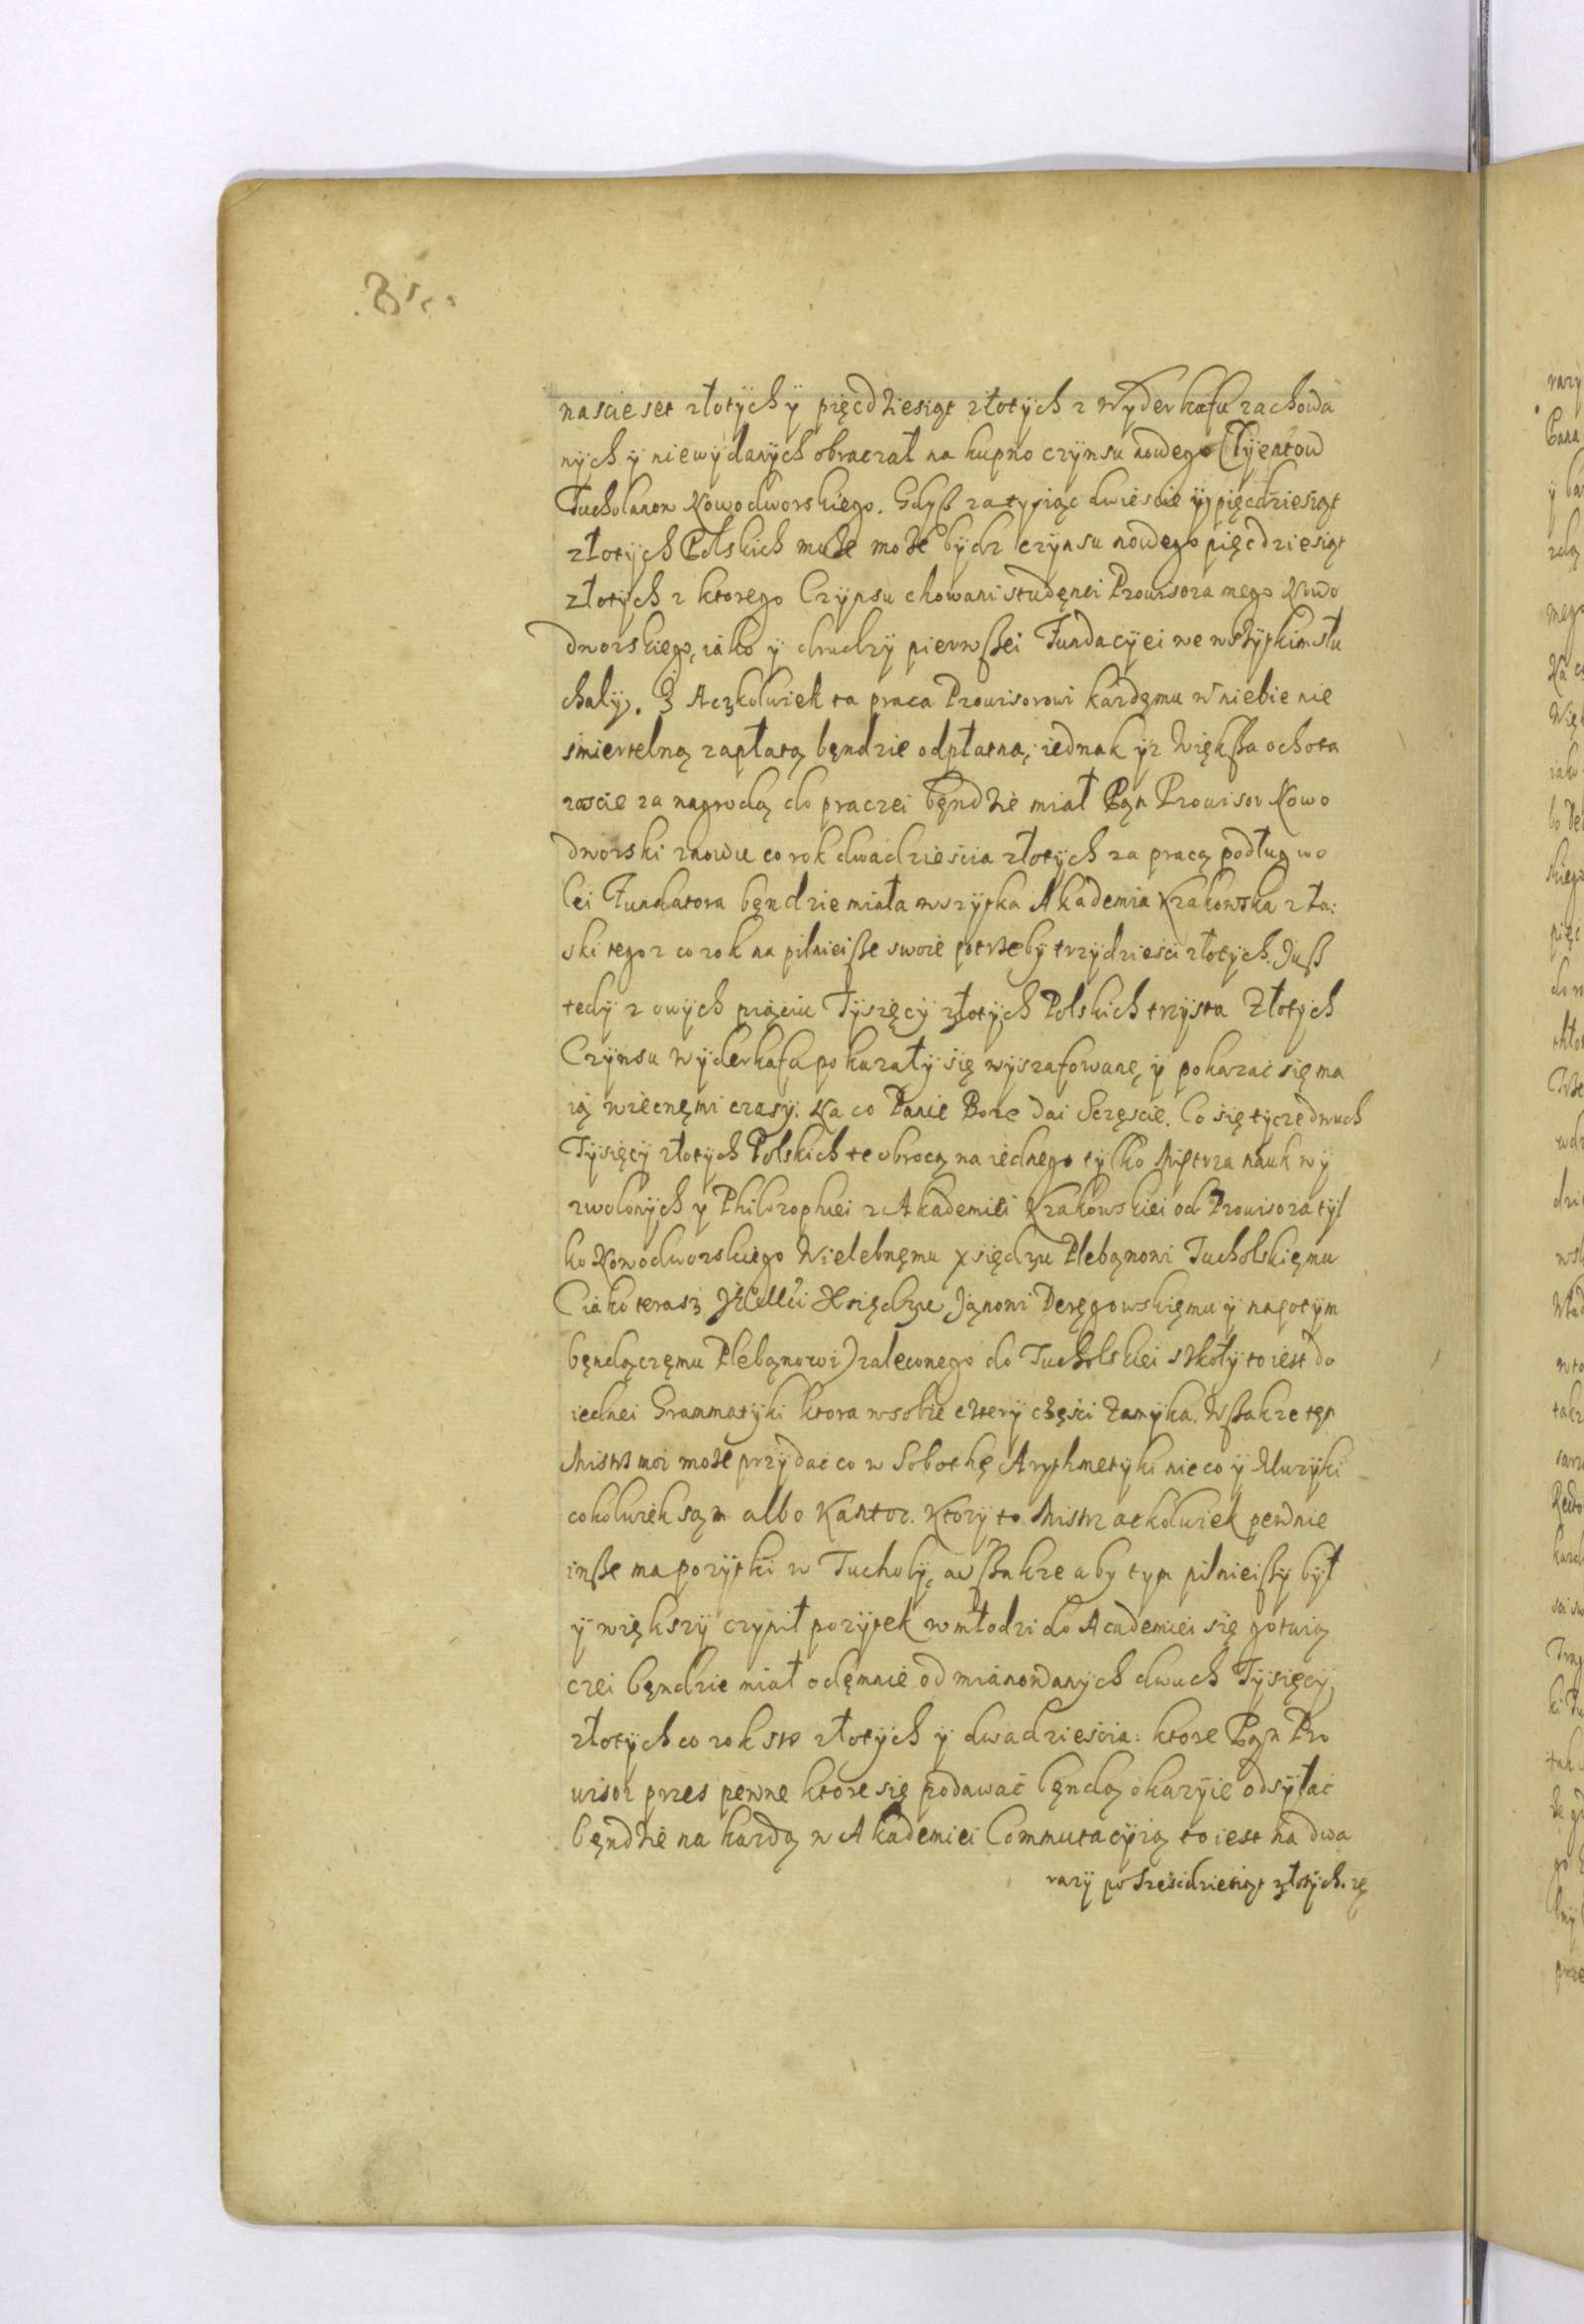 nascie set złotych y pięcdziesiąt złotych z Wyderkafu zachowa
nych y niewydanych obraczał na kupno czynsu nowego Clyentow
Tucholanon Nowodworskiego. Gdyß za tysiąc dwiescie y pięcdziesiąt
złotych Polskich może bydz czynsu nowego pięcdziesiąt
złotych z ktorego Czynsu chowani studęnci Prouisora mego Nowo
dworskiego, iako y drudzy pierwßei Fundacyei we wszytkim słu
chały. Aczkolwiek ta praca Prouisorowi kazdęmu w niebie nie
smiertelną zapłatą bęndzie odpłatna, iednak yz Więkßa ochota
roscie za nagrodą do praczei bęndzie miał Pąn Prouisor Nowo
dworski znowu co rok dwadziescia złotych za pracą podług wo
lei Fundatora bęndzie miała wszytka Akademia Krakowska z ła:
ski tegoz co rok na pilnieiße swoie potrzeby trzydziesci złotych. Juß
tedy z owych piąciu Tysięcy złotych Polskich trzysta Złotych
Czynsu wyderkafu pokazały się wyszafowane, y pokazac się ma
ią wiecznęmi czasy. Na co Panie Boze dai Sczęscie. Co się tycze dwuch
Tysięcy złotych Polskich te obrocą na iednego tylko Mistrza nauk wy
zwolonych y Philozophiei z Akademiei Krakowskiei od Prouisora tyl
ko Nowodworskiego Wielebnęmu xsiędzu Plebąnowi Tucholskięmu
(iako terasz Xsiędzu Jąnowi Deręgowskięmu y napotym
bęndączęmu Plebąnowi) zaleconego do Tucholskiei szkoły to iest do
iednei Grammatyki ktora w sobie cztery częsci Zamyka. Wßakze tęn
Mistrz moi może przydac co w Sobothę Arythmetyki nieco y Muzyki
cokolwiek sąm albo Kantor. Ktory to Mistrz ackolwiek pewnie
inße ma pozytki w Tucholy, awßakze aby tym pilnieißy był
y większy czynił pozytek w młodzi do Academiei się gotuią
czei bęndzie miał odęmnie od mianowanych dwuch Tysięcy
złotych co rok sto złotych y dwadziescia: ktore Pąn Pro
uisor przes pewne ktore się podawać bęndą okazyie odsyłać
bęndzie na kazdą w Akademiei Commutacyią to iest na dwa
razy po Szescdziesiąt złotych. zę